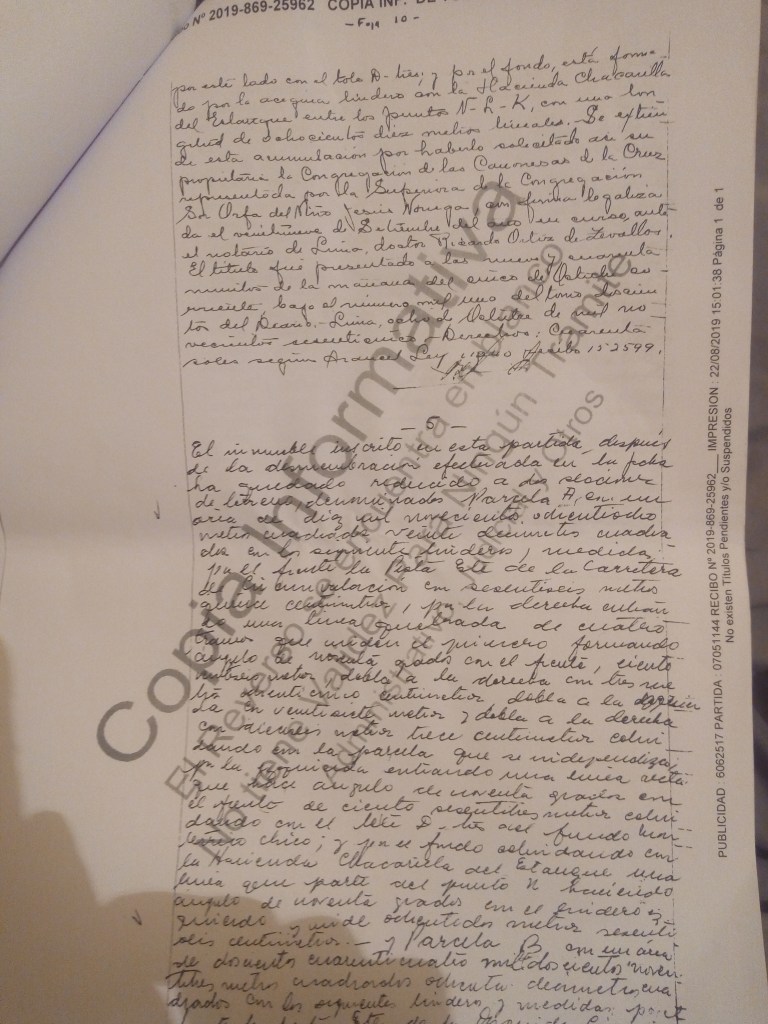 Nº 2019-869-25962 COPIA INF.
- Foja 10 -
por este lado con el lote D-tres; y por el fondo, está forma-
do por la acequia lindero con la Hacienda Chacarilla
del Estanque entre los puntos N-L-K, con una lon-
gitud de ochocientos diez metros lineales.- Se extien-
de esta acumulación por haberlo solicitado así su
propietaria la Congregación de las Canonesas de la Cruz
representada por la Superiora de la Congregación
Sor Orfa del Niño Jesús Noriega con firma legaliza-
da el veintinueve de Setiembre del año en curso, ante
el notario de Lima, doctor Ricardo Ortiz de Zevallos.
El título fué presentado a las nueve y cuarenta
minutos de la mañana del cinco de Octubre
bajo el número mil uno del tomo
del Diario.- Lima, ocho de Octubre de mil no-
vecientos sesenticinco.- Derechos: Cuarenta
soles según Arancel Ley Recibo 152599.
- 5 -
El inmueble inscrito en esta partida, después
de la desmembración efectuada en la fecha
ha quedado reducido a dos secciones
de terreno denominados Parcela A, con un
área de diez mil novecientos
metros cuadrados veinte decímetros cuadra-
dos con los siguientes linderos y medidas,
por el frente la Pista Este de la Carretera
de Circunvalación con sesentiseis metros
quince centímetros, por la derecha entran-
do una línea quebrada de cuatro
tramos que miden el primero formando
ángulo de noventa grados con el frente, ciento
metros dobla a la derecha con tres me-
tros centímetros dobla a la
da en veintisiete metros y dobla a la derecha
con metros trece centímetros colin-
dando con la parcela que se independiza,
por la izquierda entrando una línea recta
que hace ángulo de noventa grados con
el frente de ciento sesentitres metros colin-
dando con el lote D-tres del fundo
chico; y por el fondo colindando con
la Hacienda Chacarilla del Estanque una
línea que parte del punto N haciendo
ángulo de noventa grados con el lindero iz-
quierdo y mide ochentidos metros sesenti-
seis centímetros.- y Parcela B con un área
de doscientos cuarenticuatro mil doscientos noven-
titres metros cuadrados ochenta decímetros cua-
drados con los siguientes linderos y medidas: por
Copia Informativa
El Reverso se encuentra en blanco
No tiene Validez Para Ningún Trámite
Administrativo, Judicial y Otros
PUBLICIDAD 6062517 PARTIDA : 07051144 RECIBO Nº 2019-869-25962 IMPRESION : 22/08/2019 15:01:38 Página 1 de 1
No existen Títulos Pendientes y/o Suspendidos